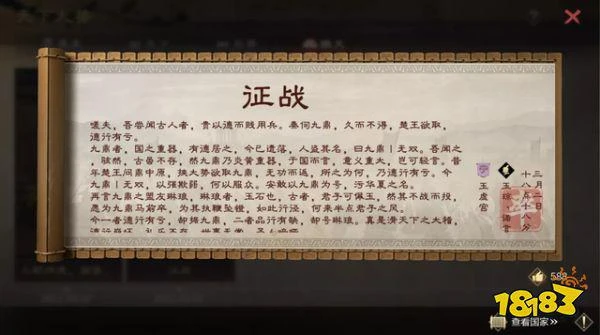 征战
嗟夫，吾尝闻古人者，贵以德而贱用兵。秦伺九鼎，久而不得，楚王欲取，
德行有亏。
九鼎者，国之重器，有德居之，今已遗落，人盗其名，曰九鼎丨无双。吾闻之
，骇然，古虽不存，然九鼎乃炎黄重器，于国而言，意义重大，岂可轻言。昔
年楚王问鼎中原，挟大势欲取九鼎，无功而返，所之为何，乃德行有亏。今
九鼎丨无双，以强欺弱，何以服众。安敢以九鼎为号，污华夏之名。
再言九鼎之盟友琳琅，琳琅者，玉石也，古者，君子可佩玉，然其不战而投，
愿为九鼎马前卒，为其扶鞭坠镫，如此行径，何来半点君子之风。
今一者德行有亏，却掷九鼎，二者品行有缺，却号琳琅。真是滑天下之大稽，
三月二日
十八点八分
玉琼、诵言
玉虚宫
588
查看国家»
18183